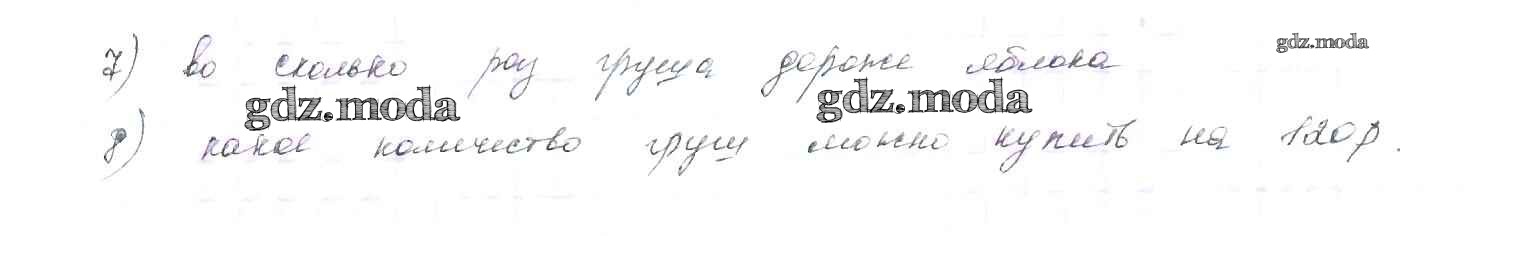 7) во сколько раз груша дороже яблока
gdz.moda
gdz.moda gdz.moda
8) какое количество груш можно купить на 120 р.